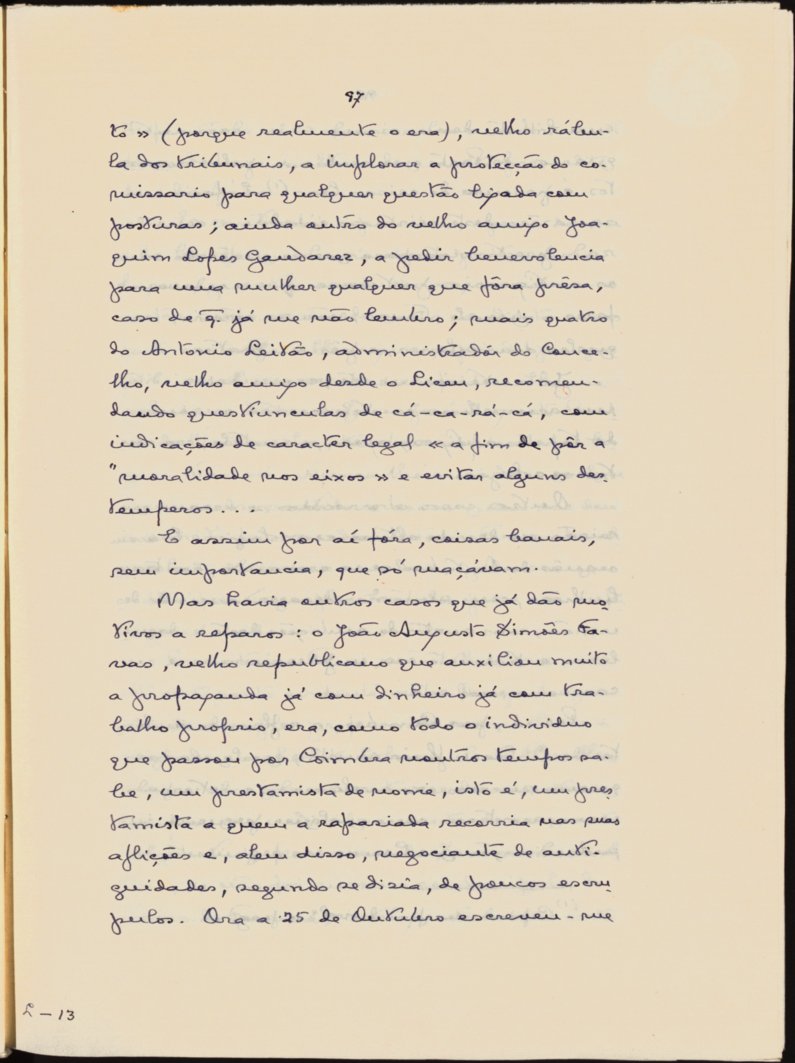 97
to » (porque realmente o era), velho rábu-
la dos tribunais, a implorar a protecção do co-
missario para qualquer questão ligada com
posturas; ainda outro do velho amigo Joa-
quim Lopes Gandarez, a pedir benevolencia
para uma mulher qualquer que fôra prêsa,
caso de q. já me não lembro; mais quatro
do Antonio Leitão, administradôr do Conce-
lho, velho amigo desde o Liceu, recomen-
dando questiunculas de cá-ca-rá-cá, com
indicações de caracter legal « a fim de pôr a
"moralidade nos eixos » e evitar alguns des-
temperos . . .
E assim por aí fóra, coisas banais,
sem importancia, que só maçávam.
Mas havia outros casos que já dão mo-
tivos a reparos : o João Augusto Simões Fa-
vas, velho republicano que auxiliou muito
a propaganda já com dinheiro já com tra-
balho proprio, era, como todo o individuo
que passou por Coimbra noutros tempos sa-
be, um prestamista de nome, isto é, um pres-
tamista a quem a rapasiada recorria nas suas
aflições e, alem disso, negociante de anti-
guidades, segundo se disia, de poucos escru-
pulos. Ora a 25 de Outubro escreveu-me
L-13